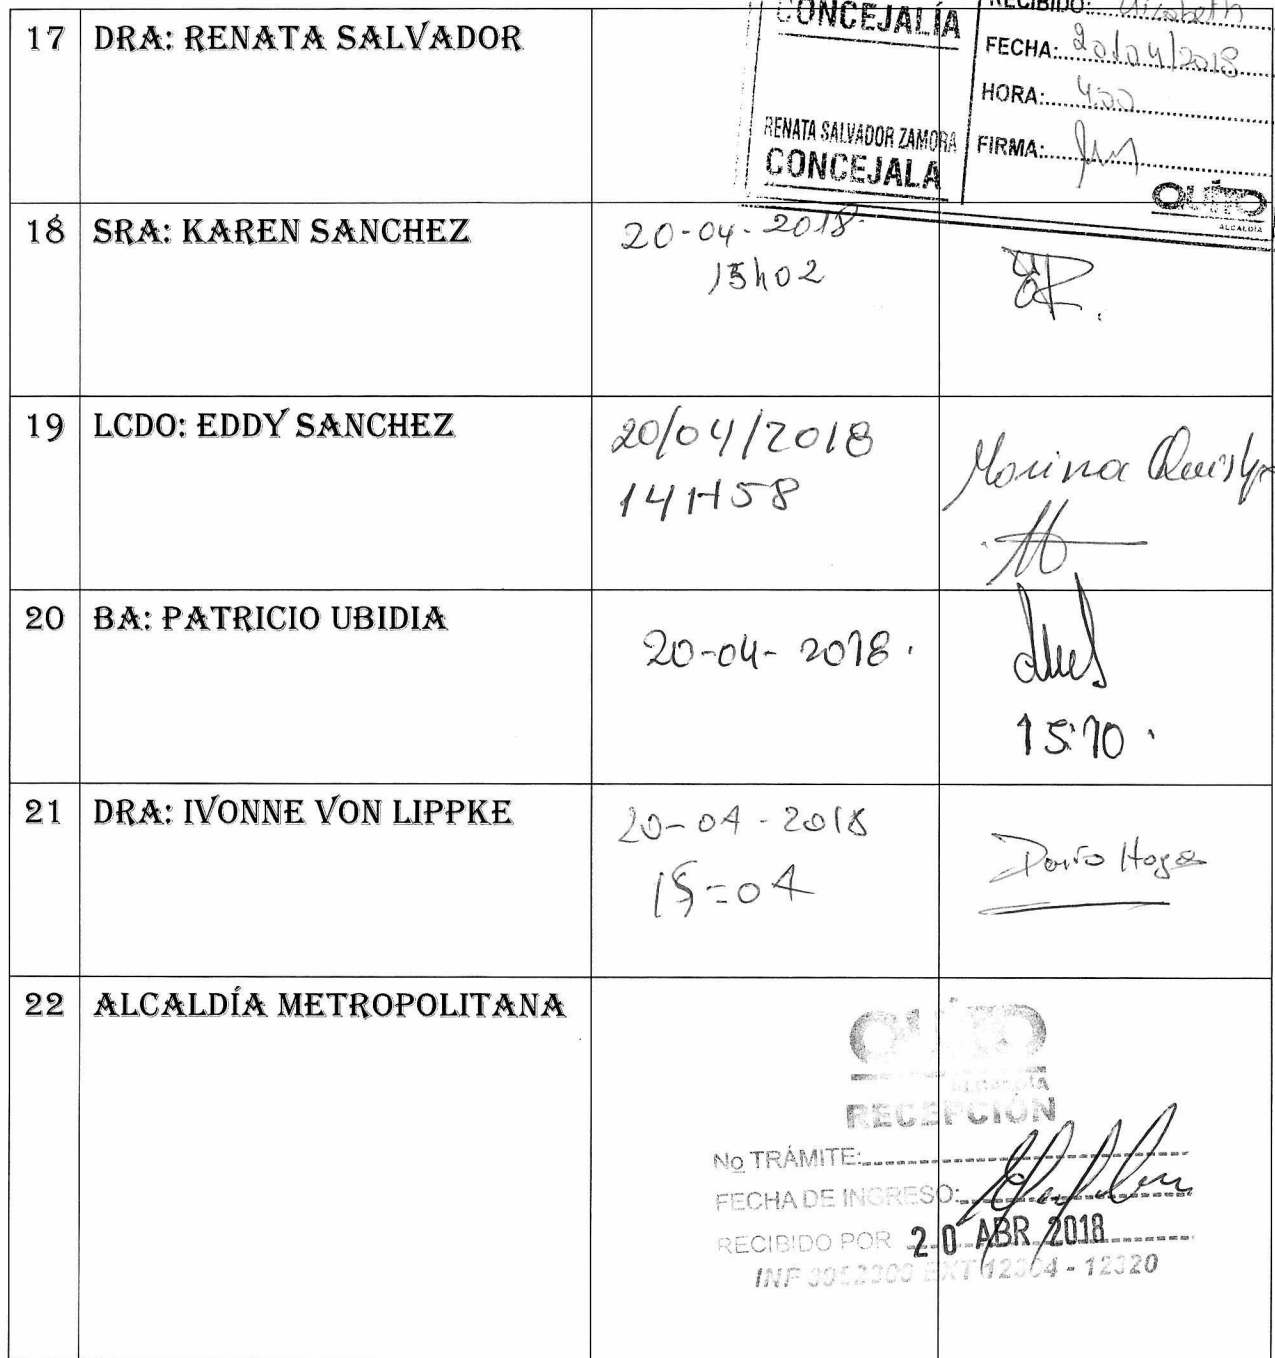 17 DRA: RENATA SALVADOR
CONCEJALÍA
RENATA SALVADOR ZAMORA
CONCEJALA
RECIBIDO: Elizabeth
FECHA: 20/04/2018
HORA: 4:00
FIRMA:
QUITO
ALCALDÍA
18 SRA: KAREN SANCHEZ
20-04-2018.
15h02
19 LCDO: EDDY SANCHEZ
20/04/2018
14H58
20 BA: PATRICIO UBIDIA
20-04-2018.
15:10.
21 DRA: IVONNE VON LIPPKE
20-04-2018
15=04
22 ALCALDÍA METROPOLITANA
QUITO
ALCALDÍA
RECEPCIÓN
No TRÁMITE:
FECHA DE INGRESO:
RECIBIDO POR 20 ABR 2018
INF EXT - 12320